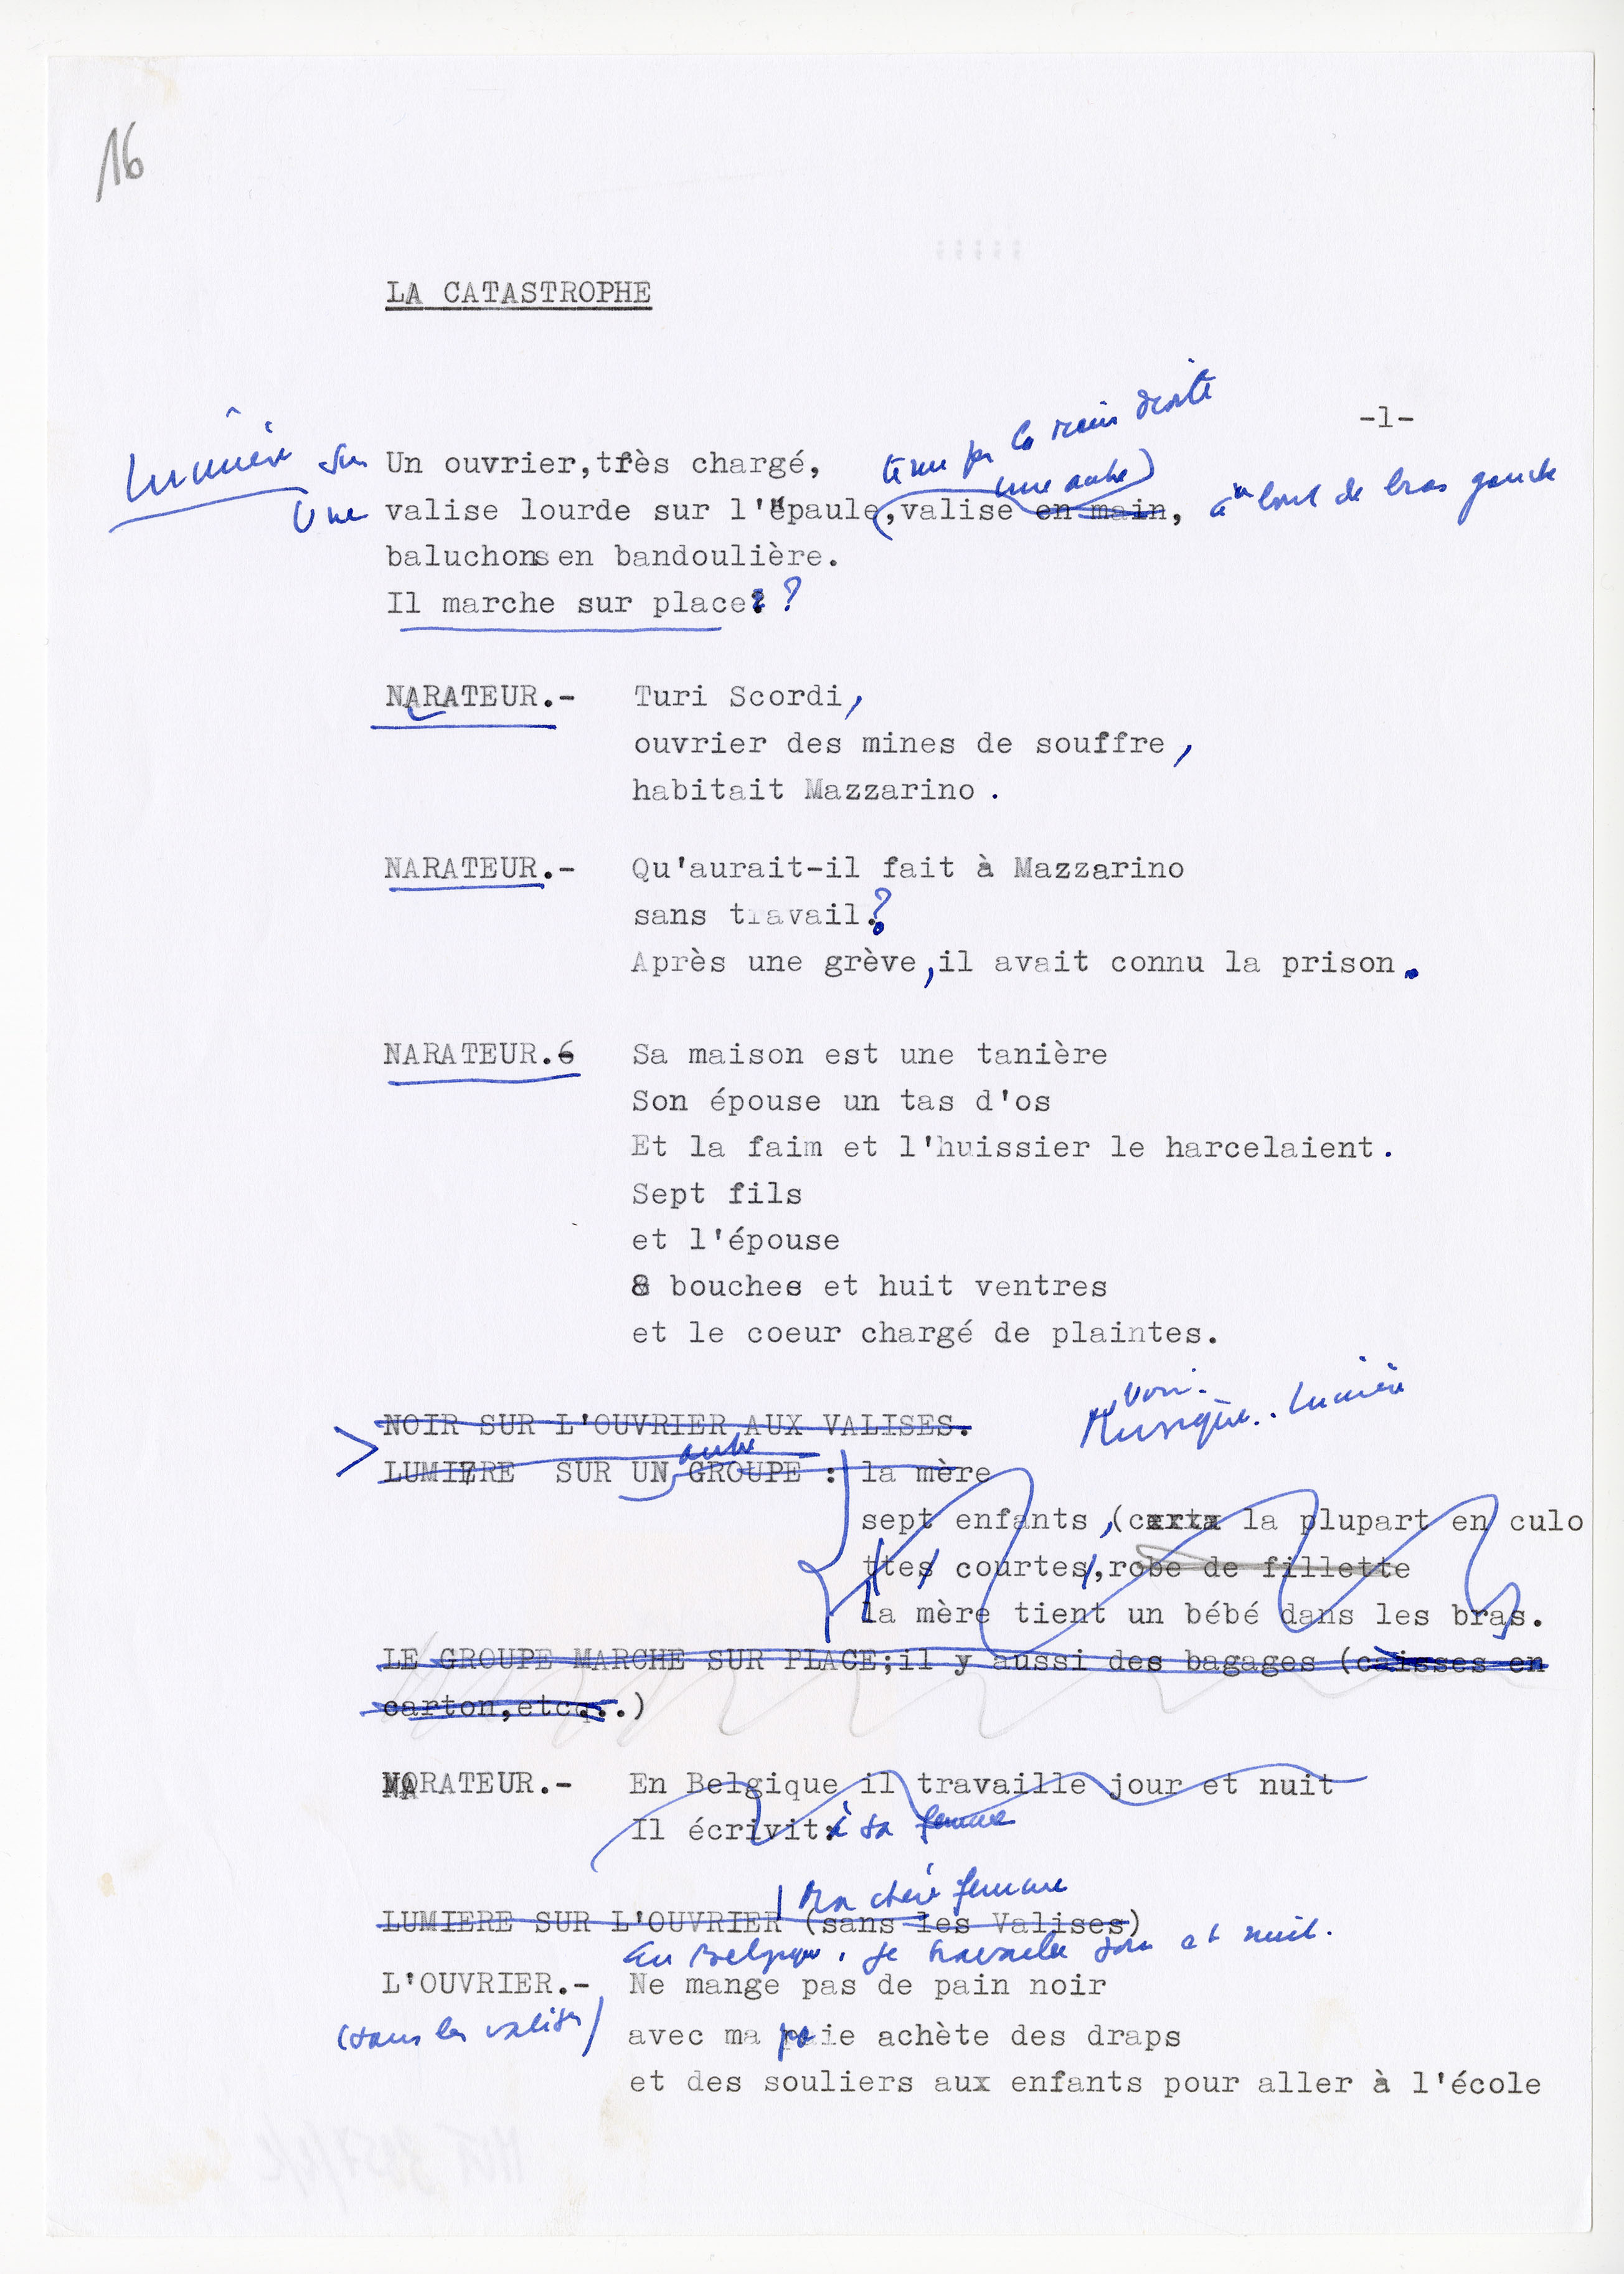 16
LA CATASTROPHE
-1-
tenue par la main droite
Lumière sur Un ouvrier,très chargé,
une autre)
Une valise lourde sur l'épaule(,valise en main, à bout de bras gauche
baluchons en bandoulière.
Il marche sur place ?
NARATEUR.- Turi Scordi,
ouvrier des mines de souffre,
habitait Mazzarino .
NARATEUR.- Qu'aurait-il fait à Mazzarino
sans travail ?
Après une grève,il avait connu la prison.
NARATEUR.6 Sa maison est une tanière
Son épouse un tas d'os
Et la faim et l'huissier le harcelaient.
Sept fils
et l'épouse
8 bouches et huit ventres
et le coeur chargé de plaintes.
Musique.. Lumière
NOIR SUR L'OUVRIER AUX VALISES.
autre
LUMIERE SUR UN GROUPE : la mère
sept enfants ,( la plupart en culo
ttes courtes,robe de fillette
la mère tient un bébé dans les bras.
LE GROUPE MARCHE SUR PLACE;il y aussi des bagages (caisses en
carton,etc...)
NARATEUR.- En Belgique il travaille jour et nuit
Il écrivit à sa femme
Ma chère femme
LUMIERE SUR L'OUVRIER (sans les Valises)
En Belgique, je travaille jour et nuit.
L'OUVRIER.- Ne mange pas de pain noir
(sans les valises) avec ma paie achète des draps
et des souliers aux enfants pour aller à l'école